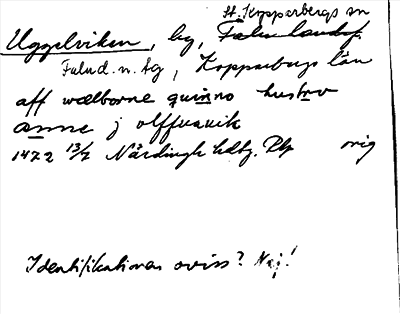 St. Kopparbergs sn
Uggelviken, bg, Falu landsf.
Falu d. n. bg, Kopparbergs län
aff wælborne quinno hustrv
anne j olffuauik
1472 13/7 Närdingh hdbg. Plp orig
Identifikationen oviss? Nej!